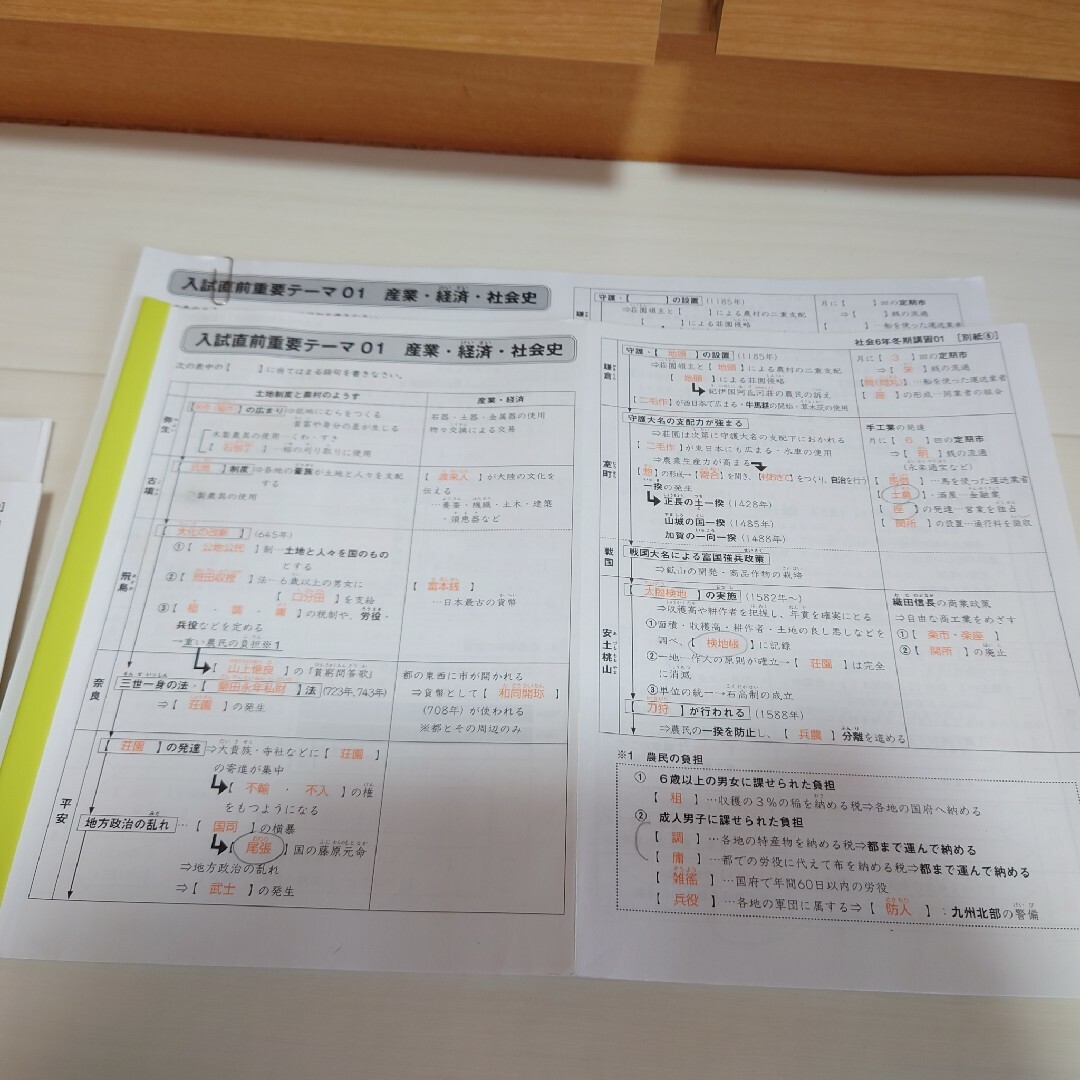 入試直前重要テーマ 01 産業・経済・社会史
守護・【 】の設置 (1185年)
⇒荘園領主と【 】による農村の二重支配
【 】による荘園侵略
月に【 】回の定期市
⇒【 】銭の流通
【 】…船を使った運送業者
入試直前重要テーマ 01 産業・経済・社会史
次の表中の【 】に当てはまる語句を書きなさい。
土地制度と農村のようす
産業・経済
弥生
の広まり⇒低地にむらをつくる
貧富や身分の差が生じる
木製農具の使用…くわ・すき
【 石包丁 】…稲の刈り取りに使用
石器・土器・金属器の使用
物々交換による交易
古墳
制度⇒各地の豪族が土地と人々を支配する
製農具の使用
【 渡来人 】が大陸の文化を伝える
…養蚕・機織・土木・建築・須恵器など
飛鳥
【 大化の改新 】(645年)
①【 公地公民 】制…土地と人々を国のものとする
②【 班田収授 】法…6歳以上の男女に
【 口分田 】を支給
③【 租 ・ 調 ・ 庸 】の税制や、労役・
兵役などを定める
→重い農民の負担※1
【 富本銭 】
…日本最古の貨幣
奈良
【 山上憶良 】の『貧窮問答歌』
三世一身の法・【 墾田永年私財 】法(723年、743年)
⇒【 荘園 】の発生
都の東西に市が開かれる
⇒貨幣として【 和同開珎 】
(708年) が使われる
※都とその周辺のみ
平安
【 荘園 】の発達⇒大貴族・寺社などに【 荘園 】
の寄進が集中
【 不輸 ・ 不入 】の権
をもつようになる
地方政治の乱れ…【 国司 】の横暴
【 尾張 】国の藤原元命
⇒地方政治の乱れ
⇒【 武士 】の発生
社会6年冬期講習01 [別紙⑧]
鎌倉
守護・【 地頭 】の設置 (1185年)
⇒荘園領主と【 地頭 】による農村の二重支配
【 地頭 】による荘園侵略
紀伊国阿氐河荘の農民の訴え
【 二毛作 】が西日本で広まる・牛馬耕の開始・草木灰の使用
月に【 3 】回の定期市
⇒【 宋 】銭の流通
【問(問丸)】…船を使った運送業者
【 座 】の形成…同業者の組合
室町
守護大名の支配力が強まる
⇒荘園は次第に守護大名の支配下におかれる
【 二毛作 】が東日本にも広まる・水車の使用
⇒農業生産力が高まる
【 惣 】の形成→【 寄合 】を開き、【村おきて】をつくり、自治を行う
一揆の発生
正長の土一揆 (1428年)
山城の国一揆 (1485年)
加賀の一向一揆 (1488年)
手工業の発達
月に【 6 】回の定期市
⇒【 明 】銭の流通
(永楽通宝など)
【 馬借 】…馬を使った運送業者
【 土倉 】・酒屋…金融業
【 座 】の発達…営業を独占
【 関所 】の設置…通行料を徴収
戦国
戦国大名による富国強兵政策
⇒鉱山の開発・商品作物の栽培
安土桃山
【 太閤検地 】の実施 (1582年〜)
⇒収穫高や耕作者を把握し、年貢を確実にとる
①面積・収穫高・耕作者・土地の良し悪しなどを
調べ、【 検地帳 】に記録
②一地一作人の原則が確立→【 荘園 】は完全
に消滅
③単位の統一→石高制の成立
【 刀狩 】が行われる (1588年)
⇒農民の一揆を防止し、【 兵農 】分離を進める
織田信長の商業政策
⇒自由な商工業をめざす
①【 楽市・楽座 】
②【 関所 】の廃止
※1 農民の負担
① 6歳以上の男女に課せられた負担
【 租 】…収穫の3%の稲を納める税⇒各地の国府へ納める
② 成人男子に課せられた負担
【 調 】…各地の特産物を納める税⇒都まで運んで納める
【 庸 】…都での労役に代えて布を納める税⇒都まで運んで納める
【 雑徭 】…国府で年間60日以内の労役
【 兵役 】…各地の軍団に属する⇒【 防人 】：九州北部の警備